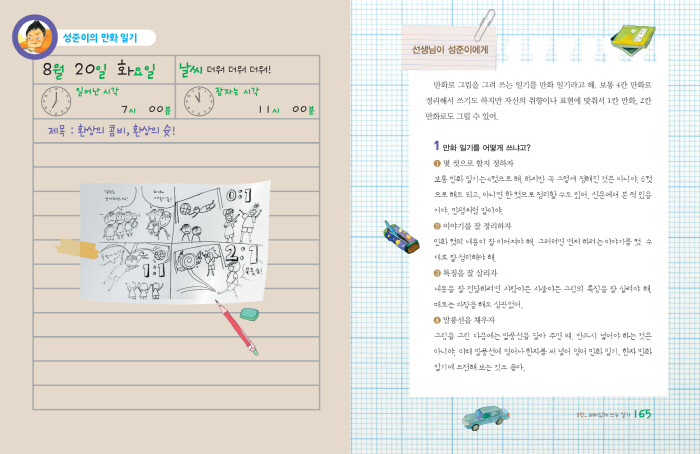 성준이의 만화 일기
8월 20일 화요일
날씨 더워 더워 더워!
일어난 시각
7시 00분
잠자는 시각
11시 00분
제목 : 환상의 콤비, 환상의 슛!
0:1
1:1
2:1
선생님이 성준이에게
만화로 그림을 그려 쓰는 일기를 만화 일기라고 해. 보통 4칸 만화로
정리해서 쓰기도 하지만 자신의 취향이나 표현에 맞춰서 1칸 만화, 2칸
만화로도 그릴 수 있어.
1 만화 일기를 어떻게 쓰냐고?
1 몇 컷으로 할지 정하자
보통 만화 일기는 4컷으로 해. 하지만 꼭 그렇게 정해진 것은 아니야. 8컷
으로 해도 되고, 아니면 한 컷으로 정리할 수도 있어. 신문에서 본 적 있을
거야. 만평처럼 말이야.
2 이야기를 잘 정리하자
만화 컷의 내용이 잘 이어져야 해. 그러려면 먼저 하려는 이야기를 컷 수
대로 잘 정리해야 해.
3 특징을 잘 살리자
내용을 잘 전달하려면 사람이든 사물이든 그림의 특징을 잘 살려야 해.
때로는 과장을 해도 상관없어.
4 말풍선을 채우자
그림을 그린 다음에는 말풍선을 달아 주면 돼. 반드시 넣어야 하는 것은
아니야. 이때 말풍선에 영어나 한자를 써 넣어 영어 만화 일기, 한자 만화
일기에 도전해 보는 것도 좋아.
165